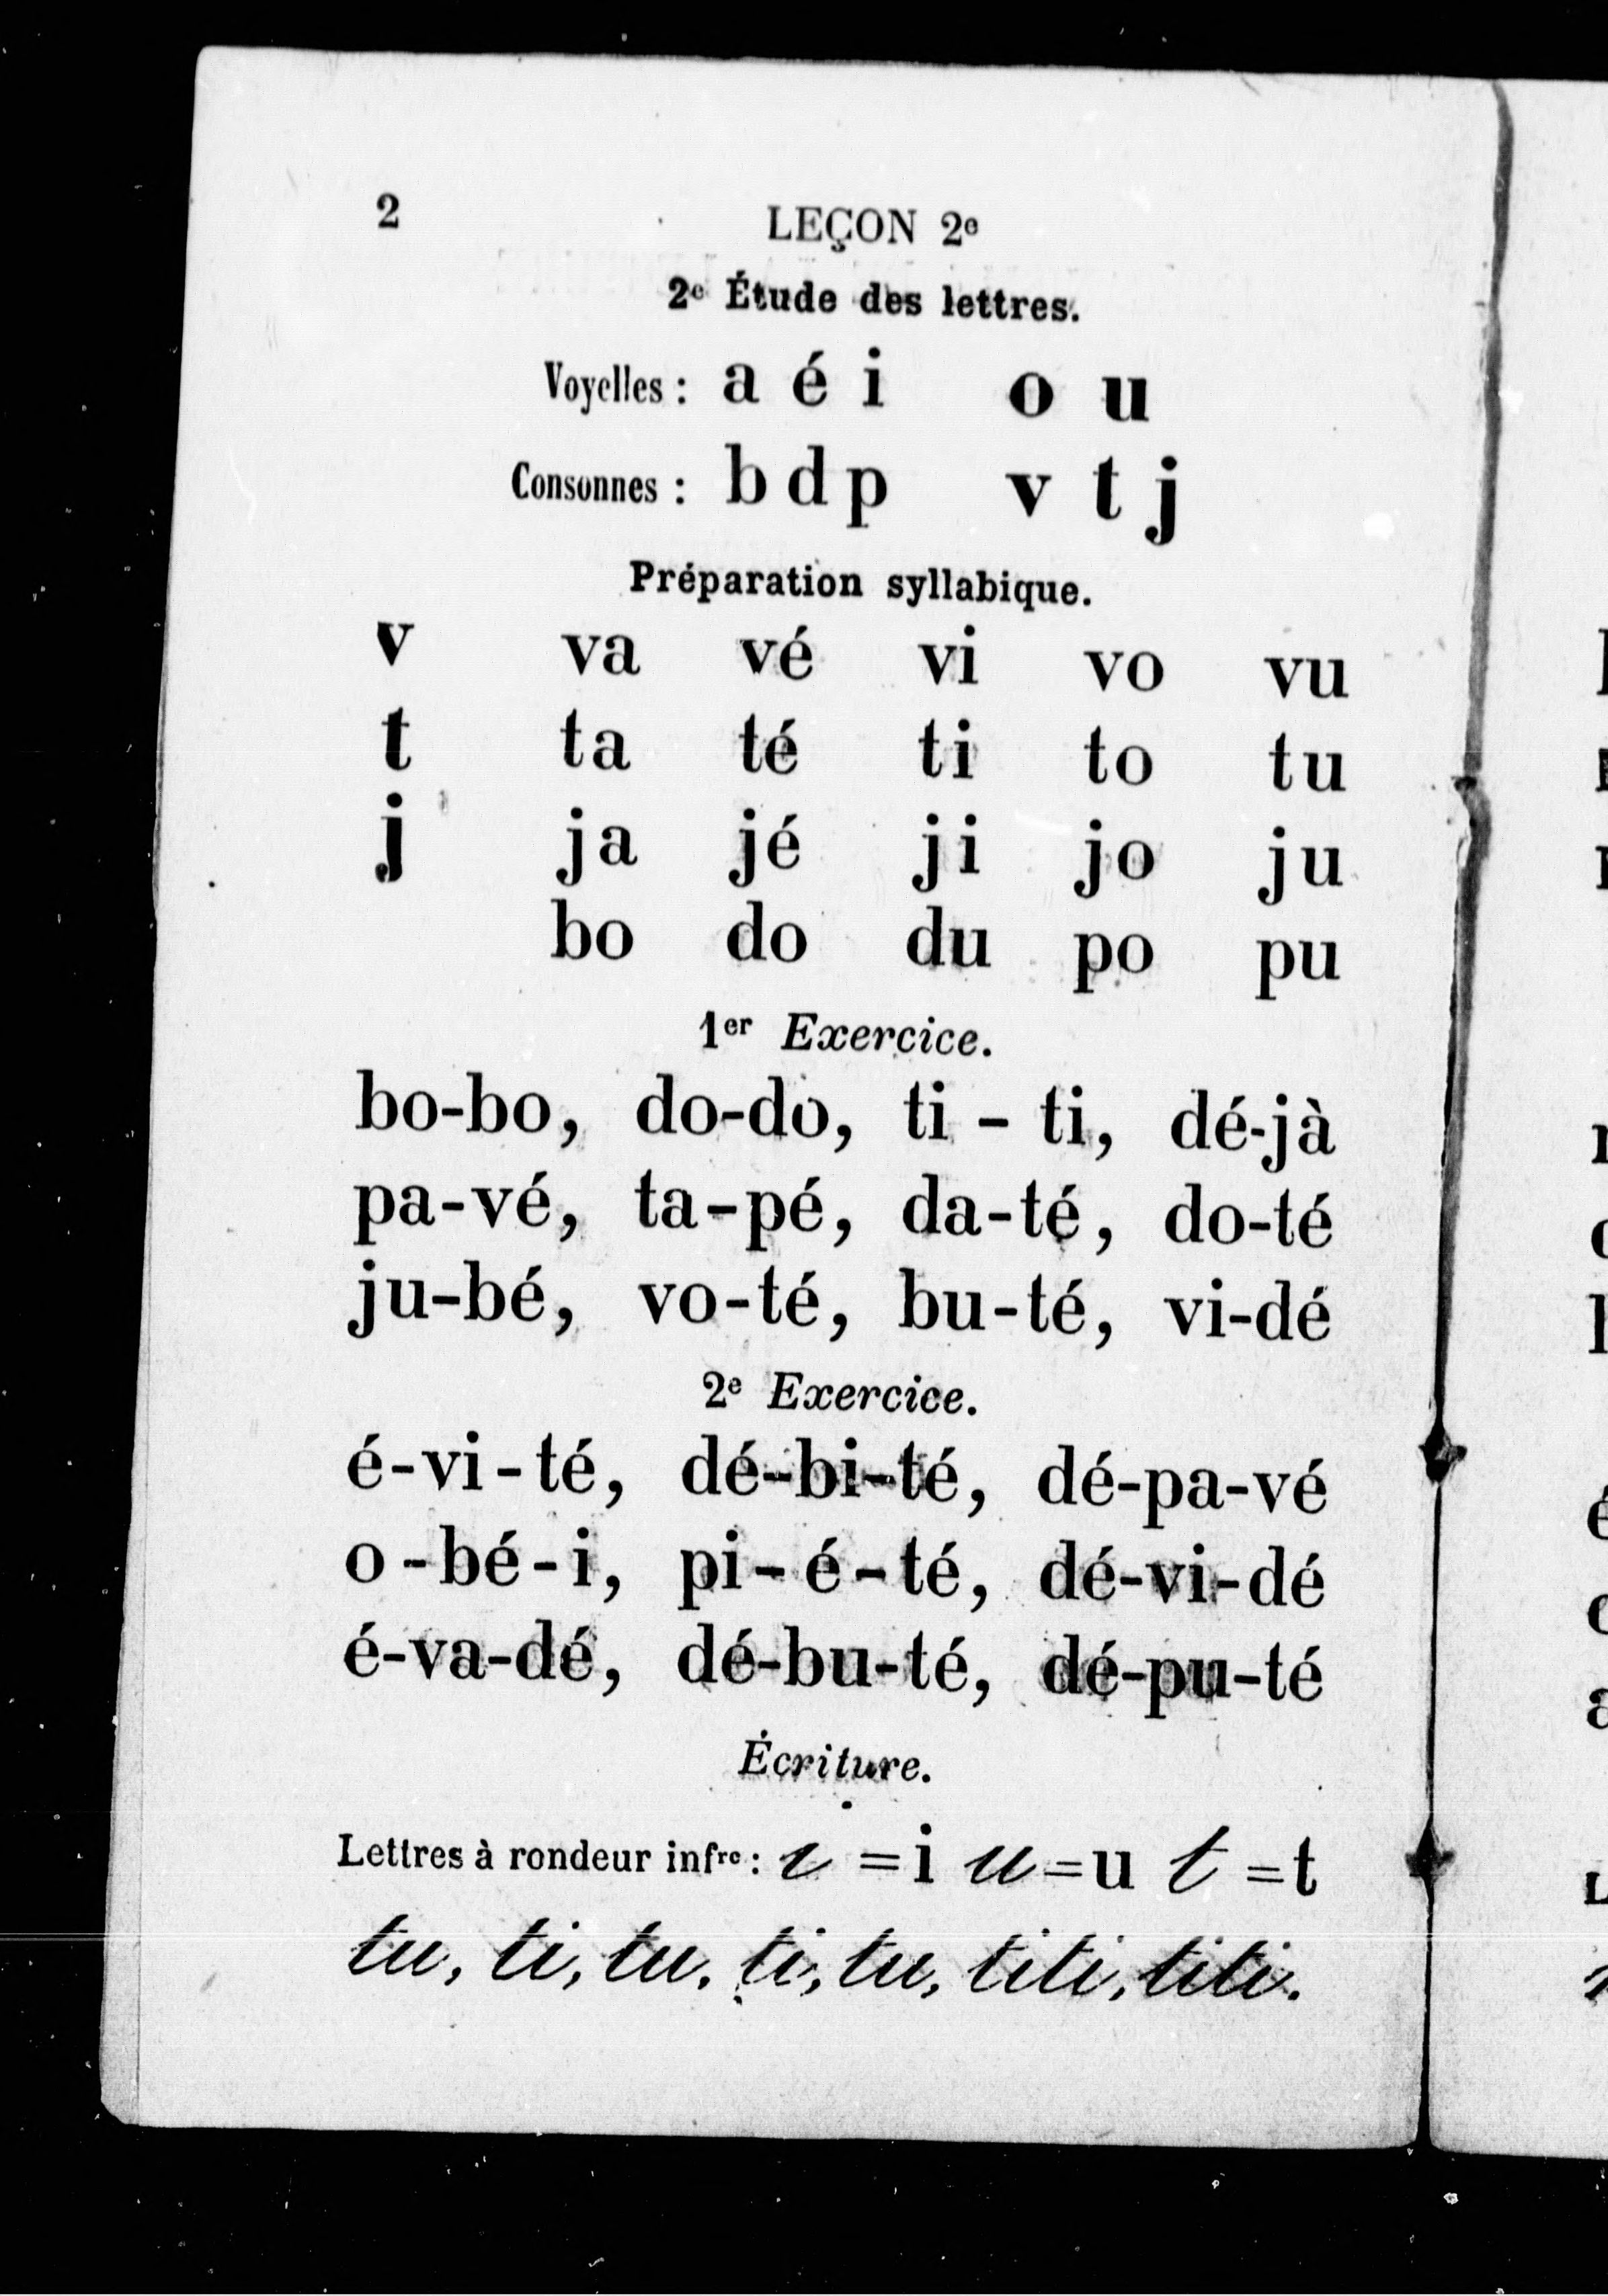 2
LEÇON 2e
2e Étude des lettres.
Voyelles : a é i o u
Consonnes : b d p v t j
Préparation syllabique.
v va vé vi vo vu
t ta té ti to tu
j ja jé ji jo ju
bo do du po pu
1er Exercice.
bo-bo, do-do, ti - ti, dé-jà
pa-vé, ta-pé, da-té, do-té
ju-bé, vo-té, bu-té, vi-dé
2e Exercice.
é-vi-té, dé-bi-té, dé-pa-vé
o-bé-i, pi-é-té, dé-vi-dé
é-va-dé, dé-bu-té, dé-pu-té
Écriture.
Lettres à rondeur infre : i = i u = u t = t
tu, ti, tu, ti, tu, titi, titi.